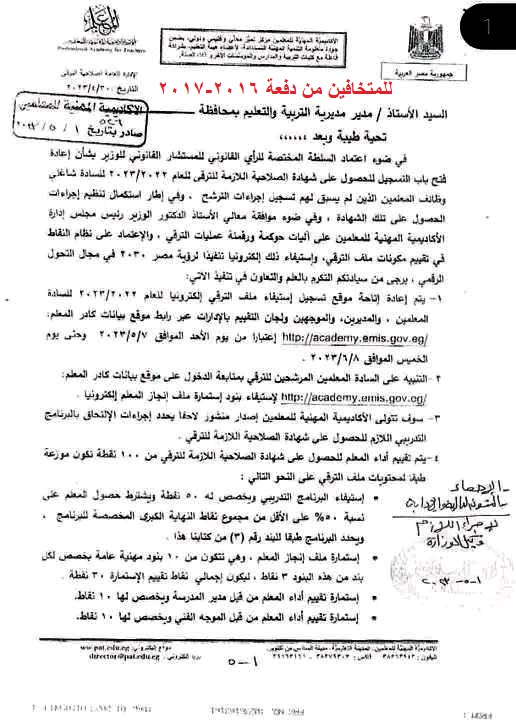 1
الأكاديمية المهنية للمعلمين مركز تميز محلي وإقليمي ودولي، يضمن
جودة منظومة التنمية المهنية المستدامة، لأعضاء هيئة التعليم، بشراكة
فاعلة مع كليات التربية والمدارس والمؤسسات الأخرى
Professional Academy for Teachers
جمهورية مصر العربية
الإدارة العامة لصلاحية الترقي
التاريخ ٢٠٢٣/٤/٣٠
للمتخافين من دفعة ٢٠١٦-٢٠١٧
الأكاديمية المهنية للمعلمين
صادر بتاريخ ١ / ٥ /
السيد الأستاذ / مدير مديرية التربية والتعليم بمحافظة
تحية طيبة وبعد ،،،،،،
في ضوء اعتماد السلطة المختصة للرأي القانوني للمستشار القانوني للوزير بشأن إعادة
فتح باب التسجيل للحصول على شهادة الصلاحية اللازمة للترقى للعام ٢٠٢٣/٢٠٢٢ للسادة شاغلي
وظائف المعلمين الذين لم يسبق لهم تسجيل إجراءات الترشح . وفي إطار استكمال تنظيم إجراءات
الحصول على تلك الشهادة ، وفي ضوء موافقة معالي الأستاذ الدكتور الوزير رئيس مجلس إدارة
الأكاديمية المهنية للمعلمين على آليات حوكمة ورقمنة عمليات الترقي ، والإعتماد على نظام النقاط
في تقييم مكونات ملف الترقي، وإستيفاء ذلك إلكترونيا تنفيذا لرؤية مصر ٢٠٣٠ في مجال التحول
الرقمي ، يرجى من سيادتكم التكرم بالعلم والتعاون في تنفيذ الآتي:
١- يتم إعادة إتاحة موقع تسجيل إستيفاء ملف الترقي إلكترونيا للعام ٢٠٢٣/٢٠٢٢ للسادة
المعلمين ، والمديرين، والموجهين ولجان التقييم بالإدارات عبر رابط موقع بيانات كادر المعلم:
http://academy.emis.gov.eg/ إعتبارا من يوم الأحد الموافق ٢٠٢٣/٥/٧ وحتى يوم
الخميس الموافق ٢٠٢٣/٦/٨ .
٢- التنبيه على السادة المعلمين المرشحين للترقي بمتابعة الدخول على موقع بيانات كادر المعلم:
http://academy.emis.gov.eg/ لإستيفاء بنود إستمارة ملف إنجاز المعلم إلكترونيا .
٣- سوف تتولى الأكاديمية المهنية للمعلمين إصدار منشور لاحقا يحدد إجراءات الإلتحاق بالبرنامج
التدريبي اللازم للحصول على شهادة الصلاحية للترقي .
٤- يتم تقييم أداء المعلم للحصول على شهادة الصلاحية اللازمة للترقي من ١٠٠ نقطة تكون موزعة
طبقا لمحتويات ملف الترقي على النحو التالي :
• إستيفاء البرنامج التدريبي ويخصص له ٥٠ نقطة ويشترط حصول المعلم على
نسبة ٥٠% على الأقل من مجموع نقاط النهاية الكبرى المخصصة للبرنامج ،
ويحدد البرنامج طبقا للبند رقم (٣) من كتابنا هذا .
• إستمارة ملف إنجاز المعلم ، وهي تتكون من ١٠ بنود مهنية عامة يخصص لكل
بند من هذه البنود ٣ نقاط ، ليكون إجمالي نقاط تقييم الإستمارة ٣٠ نقطة .
• إستمارة تقييم أداء المعلم من قبل مدير المدرسة ويخصص لها ١٠ نقاط.
• إستمارة تقييم أداء المعلم من قبل الموجه الفني ويخصص لها ١٠ نقاط.
الأكاديمية المهنية للمعلمين، المدينة التعليمية، مدينة السادس من أكتوبر
موقع إلكتروني: www.pat.edu.eg
بريد إلكتروني: director@pat.edu.eg
١-٥